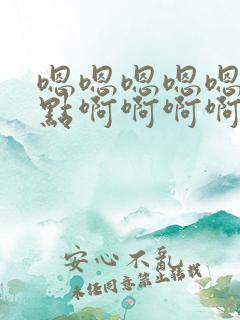 嗯嗯嗯嗯嗯
點啊啊啊啊
安心不亂
未经同意禁止转载